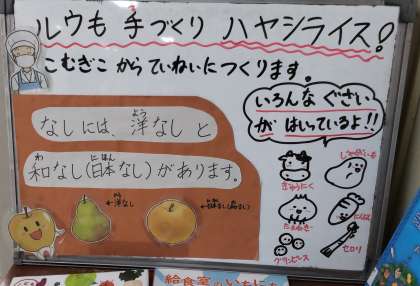 ルウも 手づくり ハヤシライス!
こむぎこ からていねいにつくります。
いろんな ぐざい
が はいっているよ!!
なしには、洋なしと
よう
和なし(日本なし)があります。
わ
にほん
←洋なし
←日本なし(和なし)
じゃがいも
ぎゅうにく
たまねぎ
にんじん
グリンピース
セロリ
給食室の